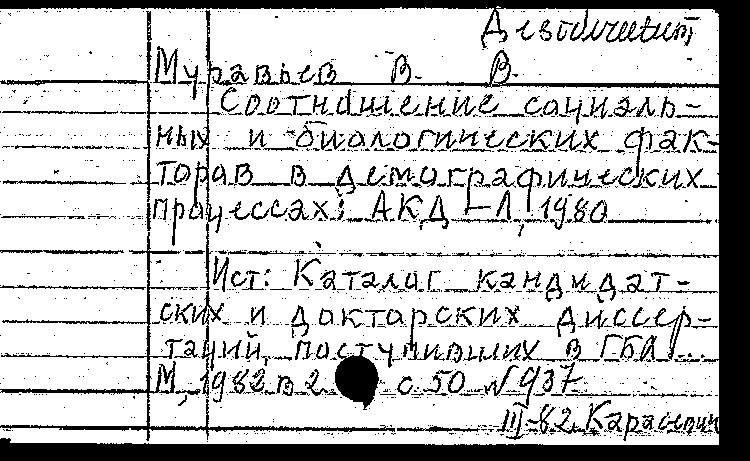 Муравьев В. В.
Соотношение социаль-
ных и биологических фак-
торов в демографических
процессах: АКД –Л, 1980
Ист: Каталог кандидат-
ских и докторских диссер-
таций, поступивших в ГБЛ...
М, 1982 в 2 с 50 N 937
III-82. Карасевич